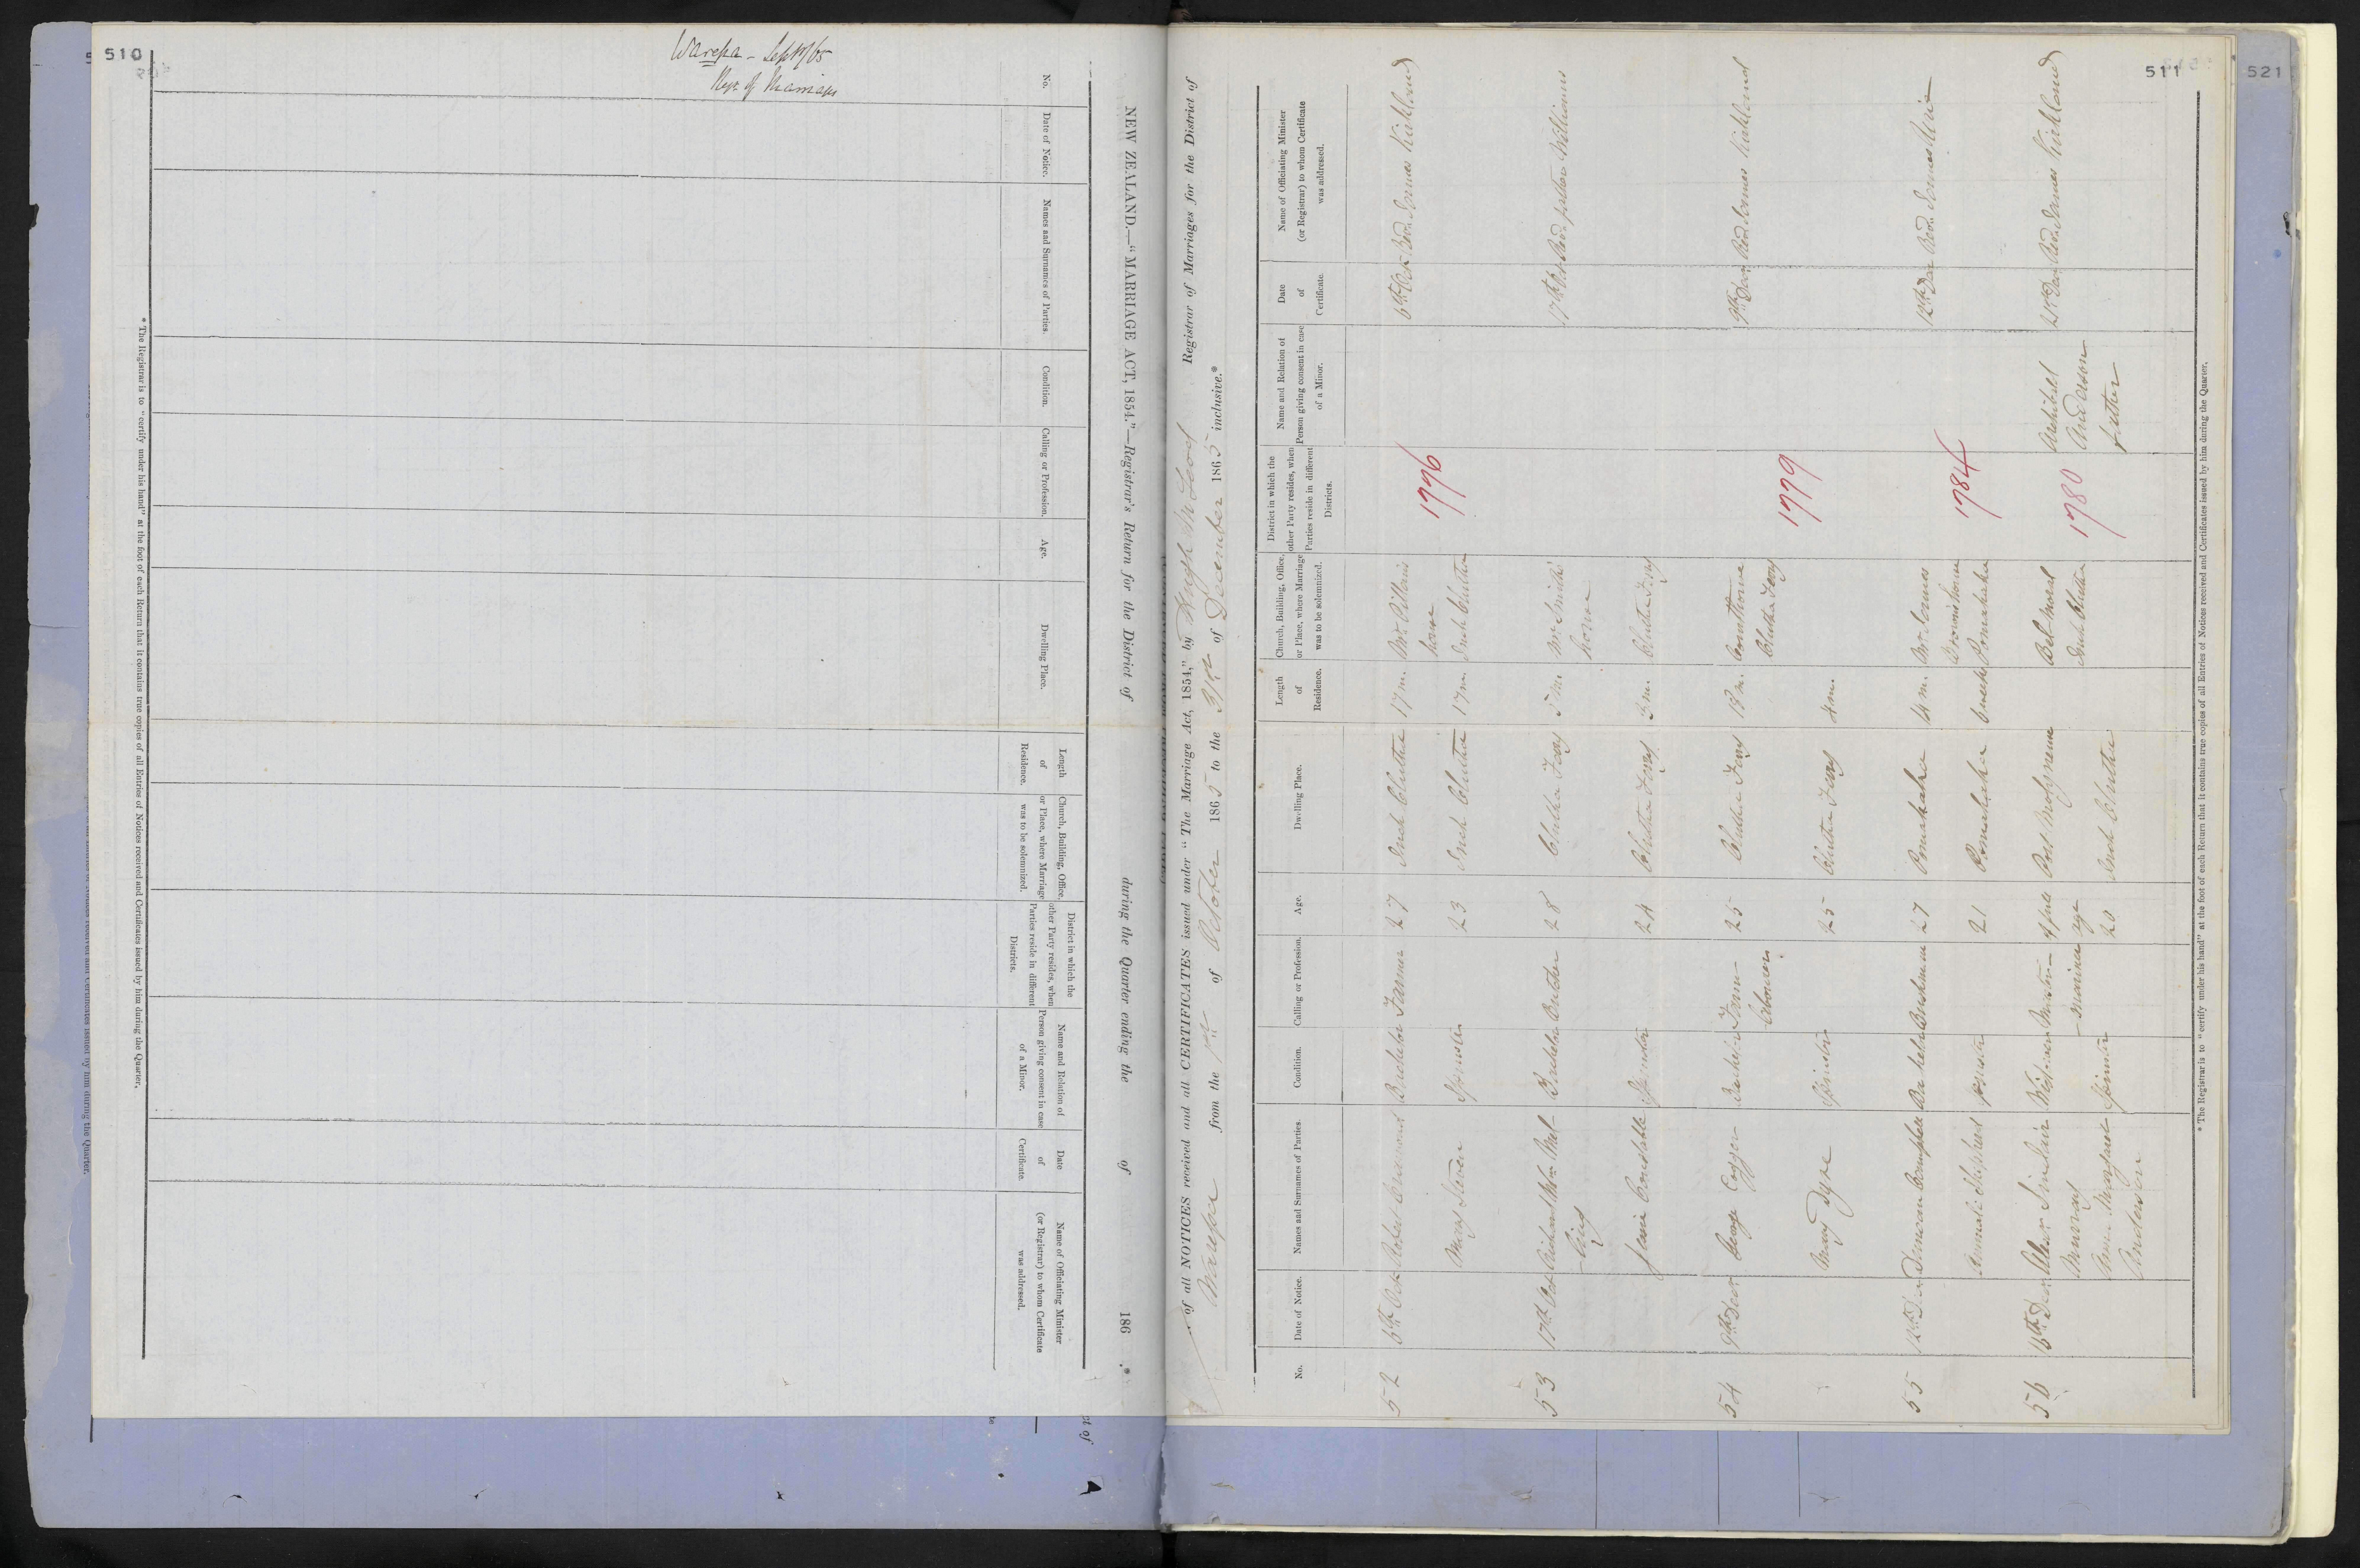 510
Warepa - Sept 1/65
Regr of Marriages
NEW ZEALAND.—"MARRIAGE ACT, 1854."—Registrar's Return for the District of during the Quarter ending the of 186 .*
No.
Date of Notice.
Names and Surnames of Parties.
Condition.
Calling or Profession.
Age.
Dwelling Place.
Length of Residence.
Church, Building, Office, or Place, where Marriage was to be solemnized.
District in which the other Party resides, when Parties reside in different Districts.
Name and Relation of Person giving consent in case of a Minor.
Date of Certificate.
Name of Officiating Minister (or Registrar) to whom Certificate was addressed.
* The Registrar is to "certify under his hand" at the foot of each Return that it contains true copies of all Entries of Notices received and Certificates issued by him during the Quarter.
511
521
of all NOTICES received and all CERTIFICATES issued under "The Marriage Act, 1854," by Hugh McLeod Registrar of Marriages for the District of
Warepa from the 1st of October 1865 to the 31st of December 1865 inclusive.*
No.
Date of Notice.
Names and Surnames of Parties.
Condition.
Calling or Profession.
Age.
Dwelling Place.
Length of Residence.
Church, Building, Office, or Place, where Marriage was to be solemnized.
District in which the other Party resides, when Parties reside in different Districts.
Name and Relation of Person giving consent in case of a Minor.
Date of Certificate.
Name of Officiating Minister (or Registrar) to whom Certificate was addressed.
52 6th Oct Robert Bachelor Farmer 27 Inch Clutha 17 m. 6th Oct Revd. James Kirkland
house
Mary Steven Spinster 23 Inch Clutha 17 m. Inch Clutha
1796
53 17th Oct Richard Wm Bachelor Butcher 28 Clutha Ferry 5 m. Mr Smith's 17th Oct Revd. Williams
house
Constable Spinster 24 Clutha Ferry 3 m. Clutha Ferry
54 9th Decr George Bachelor Farm 25 Clutha Ferry 18 m. Clutha Ferry 9th Decr Revd James Kirkland
labourer
Mary Spinster 25 Clutha Ferry 4 m.
1779
55 12th Decr Duncan Campbell Bachelor Bushman 27 Pomahaka 14 m. Mr James 12th Decr Revd. James
Brown's house
Shepherd Spinster 21 Pomahaka weeks Pomahaka
1784
56 16th Decr Sinclair Master of full Port Molyneux Bel-moral Archibald 21st Decr Revd. James Kirkland
Murray mariner age Inch Clutha Anderson
Margaret Spinster 20 Inch Clutha father
Anderson
1780
* The Registrar is to "certify under his hand" at the foot of each Return that it contains true copies of all Entries of Notices received and Certificates issued by him during the Quarter.